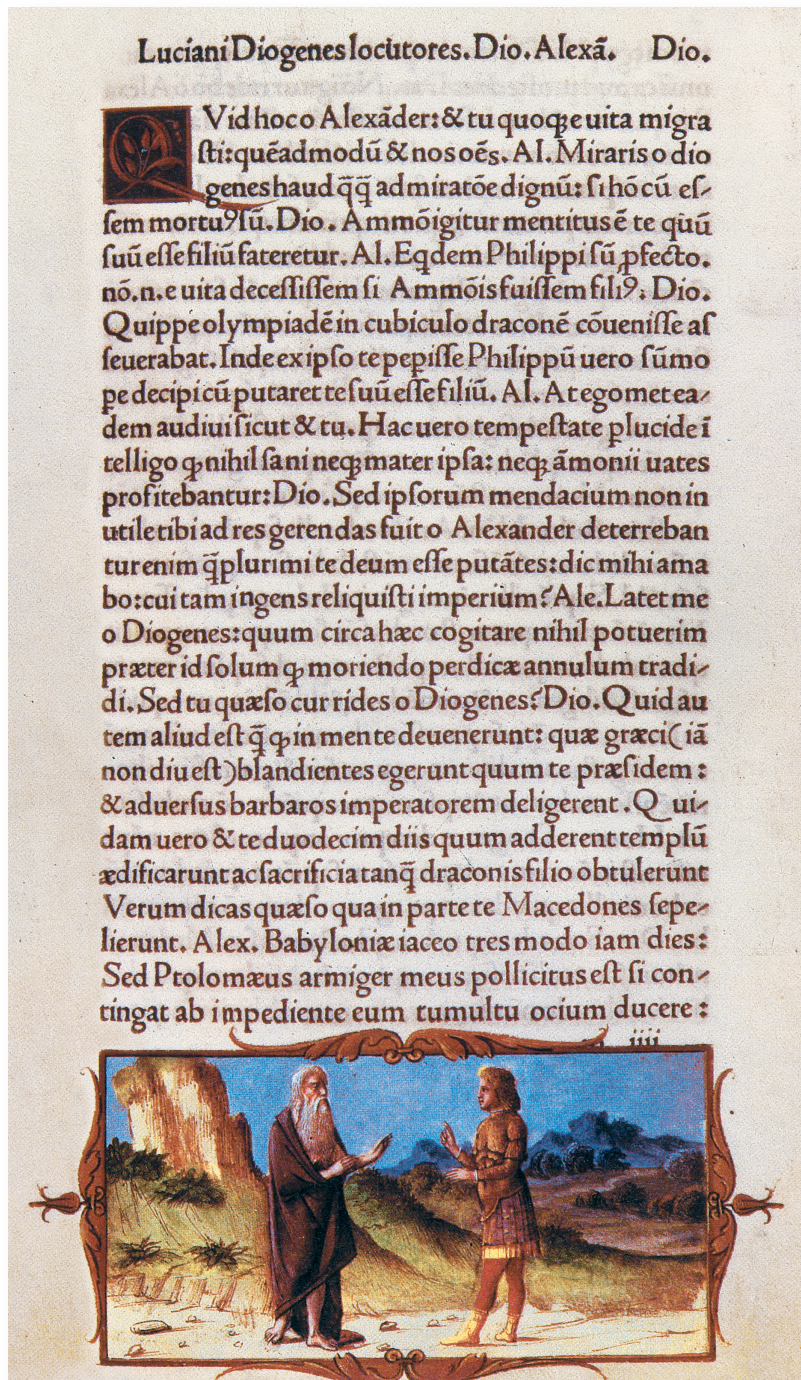 Luciani Diogenes locutores. Dio. Alexã. Dio.
QVid hoc o Alexãder: & tu quoqꝫ e uita migra
sti: quẽadmodũ & nos oẽs. Al. Miraris o dio
genes haud q̃q̃ admiratõe dignũ: si hõ cũ es-
sem mortuꝰ sũ. Dio. Ammõ igitur mentitus ẽ te qũũ
suũ esse filiũ fateretur. Al. Eqdem Philippi sũ ꝓfecto.
nõ.n.e uita decessissem si Ammõis fuissem filiꝰ: Dio.
Quippe olympiadẽ in cubiculo draconẽ cõuenisse as
seuerabat. Inde ex ipso te pepisse Philippũ uero sũmo
pe decipi cũ putaret te suũ esse filiũ. Al. At egomet ea-
dem audiui sicut & tu. Hac uero tempestate plucide ĩ
telligo ꝙ nihil sani neqꝫ mater ipsa: neqꝫ ãmonii uates
profitebantur: Dio. Sed ipsorum mendacium non in
utile tibi ad res gerendas fuit o Alexander deterreban
tur enim q̃plurimi te deum esse putãtes: dic mihi ama
bo: cui tam ingens reliquisti imperium? Ale. Latet me
o Diogenes: quum circa hæc cogitare nihil potuerim
præter id solum ꝙ moriendo perdicæ annulum tradi-
di. Sed tu quæso cur rides o Diogenes? Dio. Quid au
tem aliud est q̃ ꝙ in mente deuenerunt: quæ græci (iã
non diu est) blandientes egerunt quum te præsidem:
& aduersus barbaros imperatorem deligerent. Qui-
dam uero & te duodecim diis quum adderent templũ
ædificarunt ac sacrificia tanq̃ draconis filio obtulerunt
Verum dicas quæso qua in parte te Macedones sepe-
lierunt. Alex. Babyloniæ iaceo tres modo iam dies:
Sed Ptolomæus armiger meus pollicitus est si con-
tingat ab impediente eum tumultu ocium ducere:
iiii